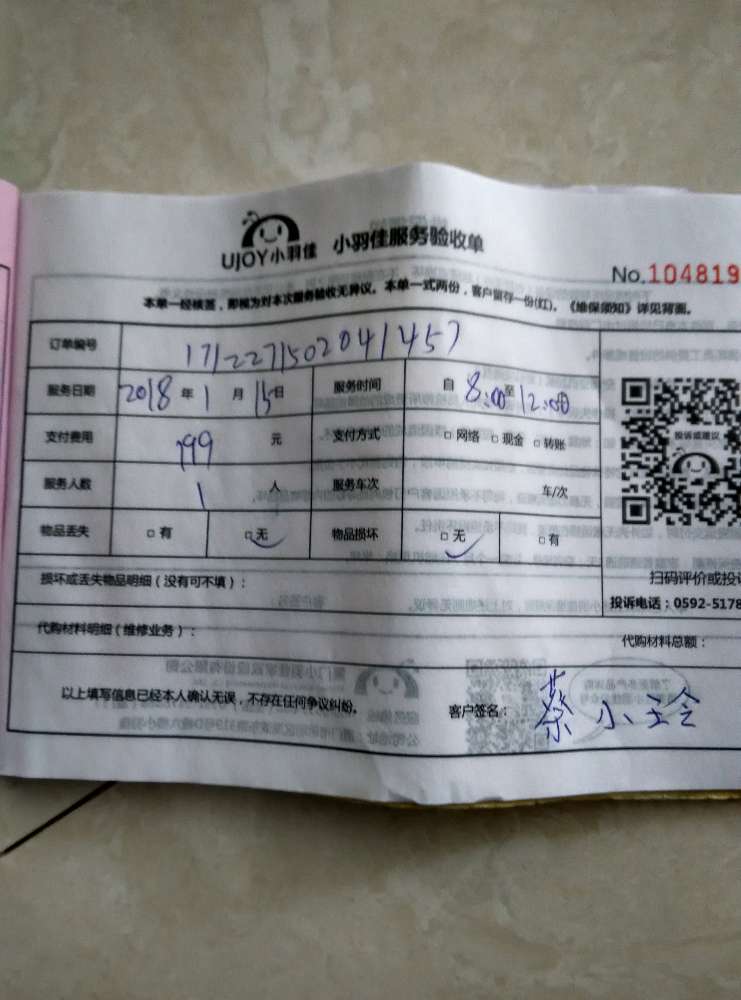 UJOY小羽佳 小羽佳服务验收单
No.104819
本单一经核签，即视为对本次服务验收无异议。本单一式两份，客户留存一份(红)。《维保须知》详见背面。
订单编号 1712271502041457
服务日期 2018年1月15日 服务时间 自8:00至12:00
支付费用 199元 支付方式 □网络 □现金 □转账
投诉或建议
服务人数 1人 服务车次 车/次
物品丢失 □有 □无 物品损坏 □无 □有
损坏或丢失物品明细（没有可不填）：
扫码评价或投诉
投诉电话：0592-5178
代购材料明细（维修业务）：
代购材料总额：
以上填写信息已经本人确认无误，不存在任何争议纠纷。
客户签名：蔡小玲